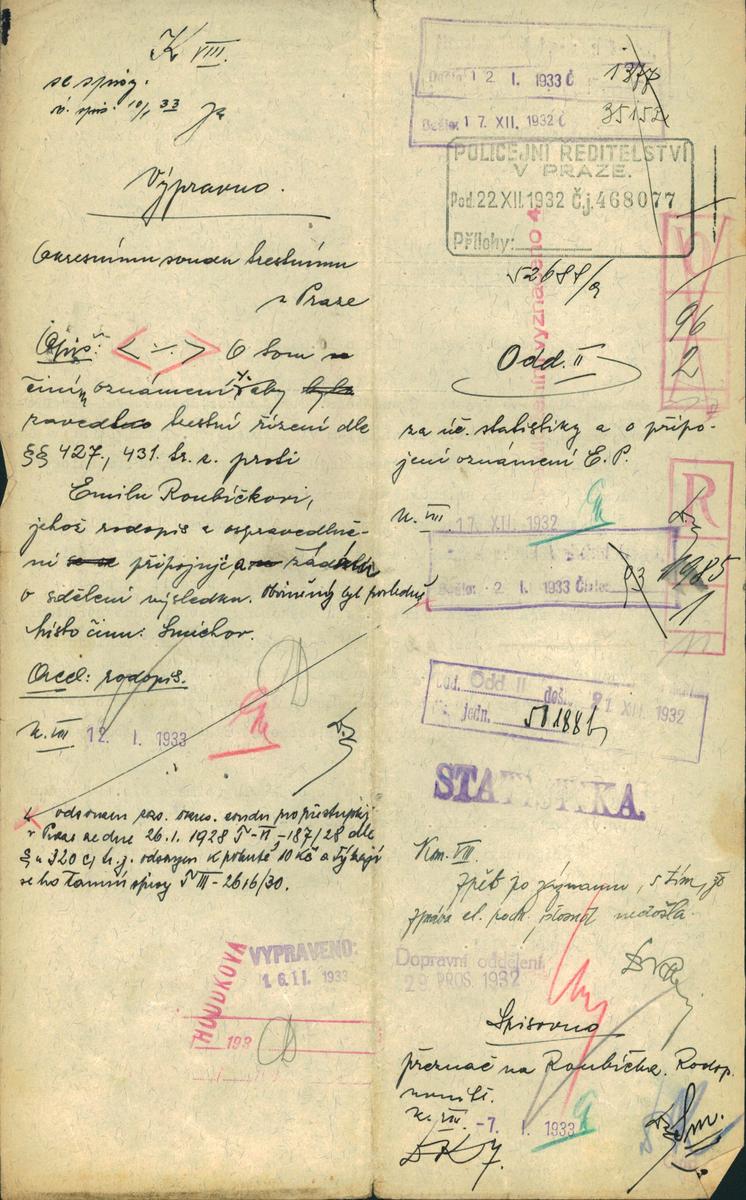 K VIII.
se spisy.
Výpravno.
Okresnímu soudu trestnímu
v Praze
Opiš: < ./. > O tom
činím oznámení, aby
zavedeno trestní řízení dle
§§ 427., 431. tr. z. proti
Emilu Roubíčkovi,
jehož rodopis a ospravedlně-
ní připojuji a žádám
o sdělení výsledku. Obviněný byl posledně
Místo činu: Smíchov.
Accl: rodopis.
K. VIII 12. I. 1933
odsouzen roz. okres. soudu pro přestupky
v Praze ze dne 26.1.1928 T-VI-187/28 dle
§u 320 c) tr. z. odsouzen k pokutě 10 Kč a týkají
se ho tamní spisy T III-2616/30.
HOUDKOVA
VYPRAVENO:
1 6. II. 1933
193
Došlo: 1 2. I. 1933 Č 1377
Došlo: 1 7. XII. 1932 Č 35152
POLICEJNÍ ŘEDITELSTVÍ
V PRAZE.
Pod. 22 XII. 1932 Č.j. 468077
Přílohy:
52688/a
96
2
Odd. II
za úč. statistiky a o připo-
jení oznámení E.P.
K. VIII. 17. XII. 1932
R
1985
11
Došlo: - 2. I. 1933 Číslo: 93
Odd. II došlo 21 XII. 1932
Č. jedn. 501886
STATISTIKA.
Kom. VIII.
Zpět po záznamu, s tím, že
zpráva el. roch. nedošla.
Dopravní oddělení
29 PROS. 1932
Spisovno
přeznač na Roubíčka. Rodop.
K. VIII. -7. I. 1933